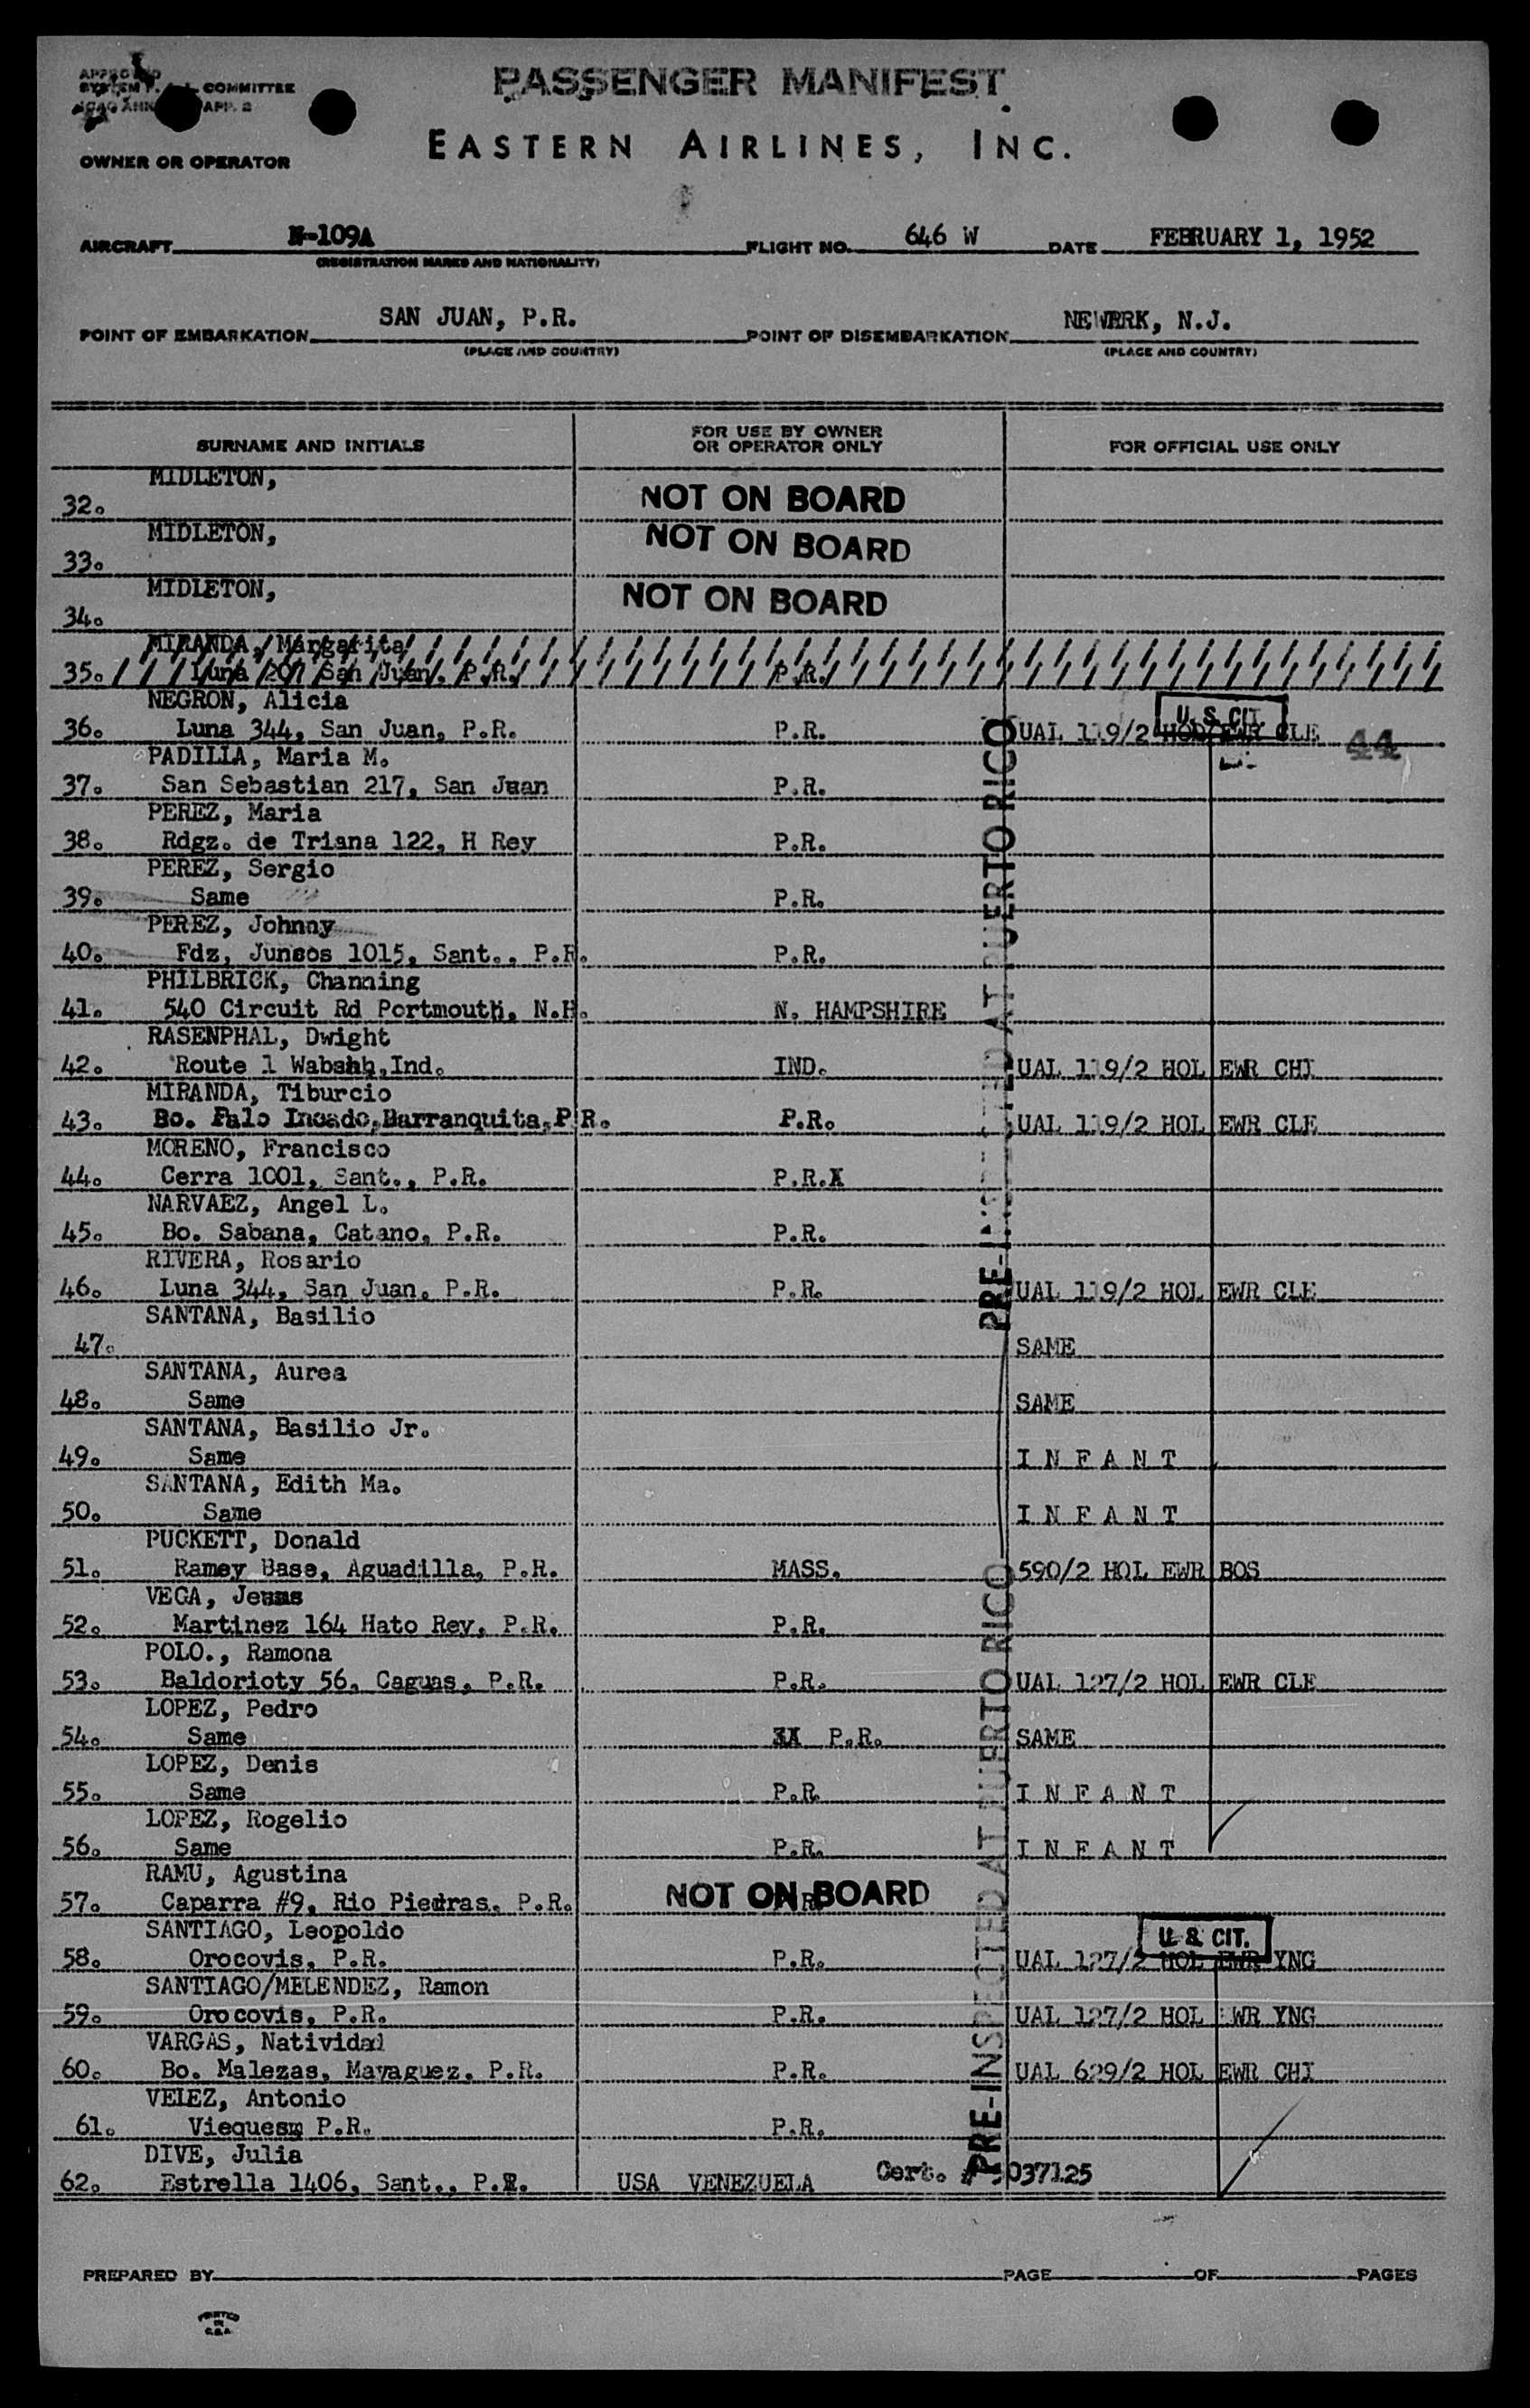 PASSENGER MANIFEST
APPROVED
SYSTEM COMMITTEE
ICAO ANN APP. 2
EASTERN AIRLINES, INC.
OWNER OR OPERATOR
AIRCRAFT N-109A FLIGHT NO. 646 W DATE FEBRUARY 1, 1952
(REGISTRATION MARKS AND NATIONALITY)
POINT OF EMBARKATION SAN JUAN, P.R. POINT OF DISEMBARKATION NEWARK, N.J.
(PLACE AND COUNTRY) (PLACE AND COUNTRY)
SURNAME AND INITIALS FOR USE BY OWNER OR OPERATOR ONLY FOR OFFICIAL USE ONLY
MIDLETON,
32. NOT ON BOARD
MIDLETON,
33. NOT ON BOARD
MIDLETON,
34. NOT ON BOARD
MIRANDA, Margarita
35. Luna 207 San Juan, P.R. P.R.
NEGRON, Alicia U.S. CIT.
36. Luna 344, San Juan, P.R. P.R. UAL 119/2 HOL EWR CLE 44
PADILLA, Maria M.
37. San Sebastian 217, San Juan P.R.
PEREZ, Maria
38. Rdgz. de Triana 122, H Rey P.R.
PEREZ, Sergio
39. Same P.R.
PEREZ, Johnny
40. Fdz, Juncos 1015, Sant., P.R. P.R.
PHILBRICK, Channing
41. 540 Circuit Rd Portmouth, N.H. N. HAMPSHIRE
RASENPHAL, Dwight
42. Route 1 Wabahh,Ind. IND. UAL 119/2 HOL EWR CHI
MIRANDA, Tiburcio
43. Bo. Palo Incado,Barranquita,P.R. P.R. UAL 119/2 HOL EWR CLE
MORENO, Francisco
44. Cerra 1001, Sant., P.R. P.R.X
NARVAEZ, Angel L.
45. Bo. Sabana, Catano, P.R. P.R.
RIVERA, Rosario
46. Luna 344, San Juan, P.R. P.R. UAL 119/2 HOL EWR CLE
PRE-INSPECTED AT PUERTO RICO
SANTANA, Basilio
47. SAME
SANTANA, Aurea
48. Same SAME
SANTANA, Basilio Jr.
49. Same I N F A N T
SANTANA, Edith Ma.
50. Same I N F A N T
PUCKETT, Donald
51. Ramey Base, Aguadilla, P.R. MASS. 590/2 HOL EWR BOS
VEGA, Jesus
52. Martinez 164 Hato Rey, P.R. P.R.
POLO., Ramona
53. Baldorioty 56, Caguas, P.R. P.R. UAL 127/2 HOL EWR CLE
LOPEZ, Pedro
54. Same P.R. SAME
LOPEZ, Denis
55. Same P.R. I N F A N T
LOPEZ, Rogelio
56. Same P.R. I N F A N T
RAMU, Agustina
57. Caparra #9, Rio Piedras, P.R. NOT ON BOARD
SANTIAGO, Leopoldo U.S. CIT.
58. Orocovis, P.R. P.R. UAL 127/2 HOL EWR YNG
SANTIAGO/MELENDEZ, Ramon
59. Orocovis, P.R. P.R. UAL 127/2 HOL EWR YNG
VARGAS, Natividad
60. Bo. Malezas, Mayaguez, P.R. P.R. UAL 629/2 HOL EWR CHI
VELEZ, Antonio
61. Viequesm P.R. P.R.
DIVE, Julia
62. Estrella 1406, Sant., P.R. USA VENEZUELA Cert. # 037125
PRE-INSPECTED AT PUERTO RICO
PREPARED BY PAGE OF PAGES
PRINTED
IN
U.S.A.